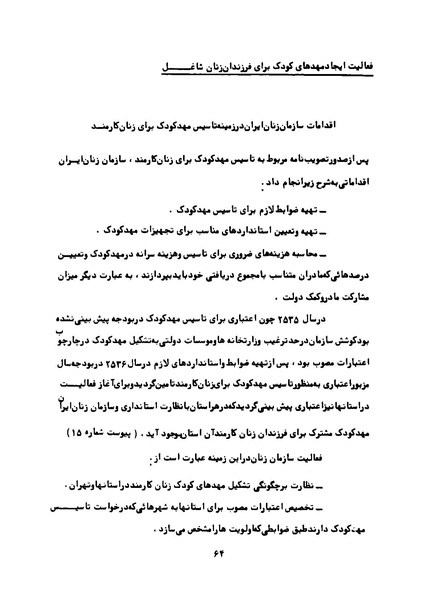 فعالیت ایجاد مهدهای کودک برای فرزندان زنان شاغــــــل
اقدامات سازمان زنان ایران در زمینه تاسیس مهد کودک برای زنان کارمنـــد
پس از صدور تصویب‌نامه مربوط به تاسیس مهد کودک برای زنان کارمند ، سازمان زنان ایــران
اقداماتی به شرح زیر انجام داد :
ــ تهیه ضوابط لازم برای تاسیس مهد کودک .
ــ تهیه و تعیین استانداردهای مناسب برای تجهیزات مهد کودک .
ــ محاسبه هزینه‌های ضروری برای تاسیس و هزینه سرانه در مهد کودک و تعییــن
درصدهائی که مادران متناسب با مجموع دریافتی خود باید بپردازند ، به عبارت دیگر میزان
مشارکت مادر و کمک دولت .
در سال ۲۵۳۵ چون اعتباری برای تاسیس مهد کودک در بودجه پیش بینی نشده
بود کوشش سازمان در حد ترغیب وزارتخانه ها و موسسات دولتی به تشکیل مهد کودک در چارچوب
اعتبارات مصوب بود ، پس از تهیه ضوابط و استانداردهای لازم در سال ۲۵۳۶ در بودجه سال
مزبور اعتباری به منظور تاسیس مهد کودک برای زنان کارمند تامین گردید و برای آغاز فعالیـــت
در استانها نیز اعتباری پیش بینی گردید که در هر استان با نظارت استانداری و سازمان زنان ایران
مهد کودک مشترک برای فرزندان زنان کارمند آن استان بوجود آید . ( پیوست شماره ۱۵ )
فعالیت سازمان زنان در این زمینه عبارت است از :
ــ نظارت بر چگونگی تشکیل مهدهای کودک زنان کارمند در استانها و تهران .
ــ تخصیص اعتبارات مصوب برای استانها به شهرهائی که درخواست تاسیـــس
مهد کودک دارند طبق ضوابطی که اولویت ها را مشخص می سازد .
۶۴